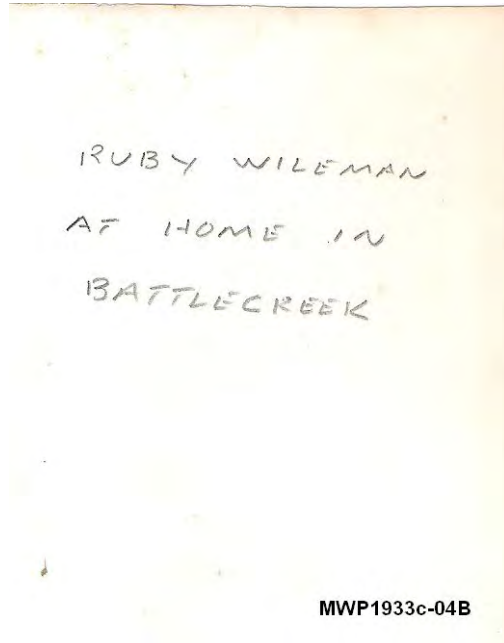 RUBY WILEMAN
AT HOME IN
BATTLECREEK
MWP1933c-04B